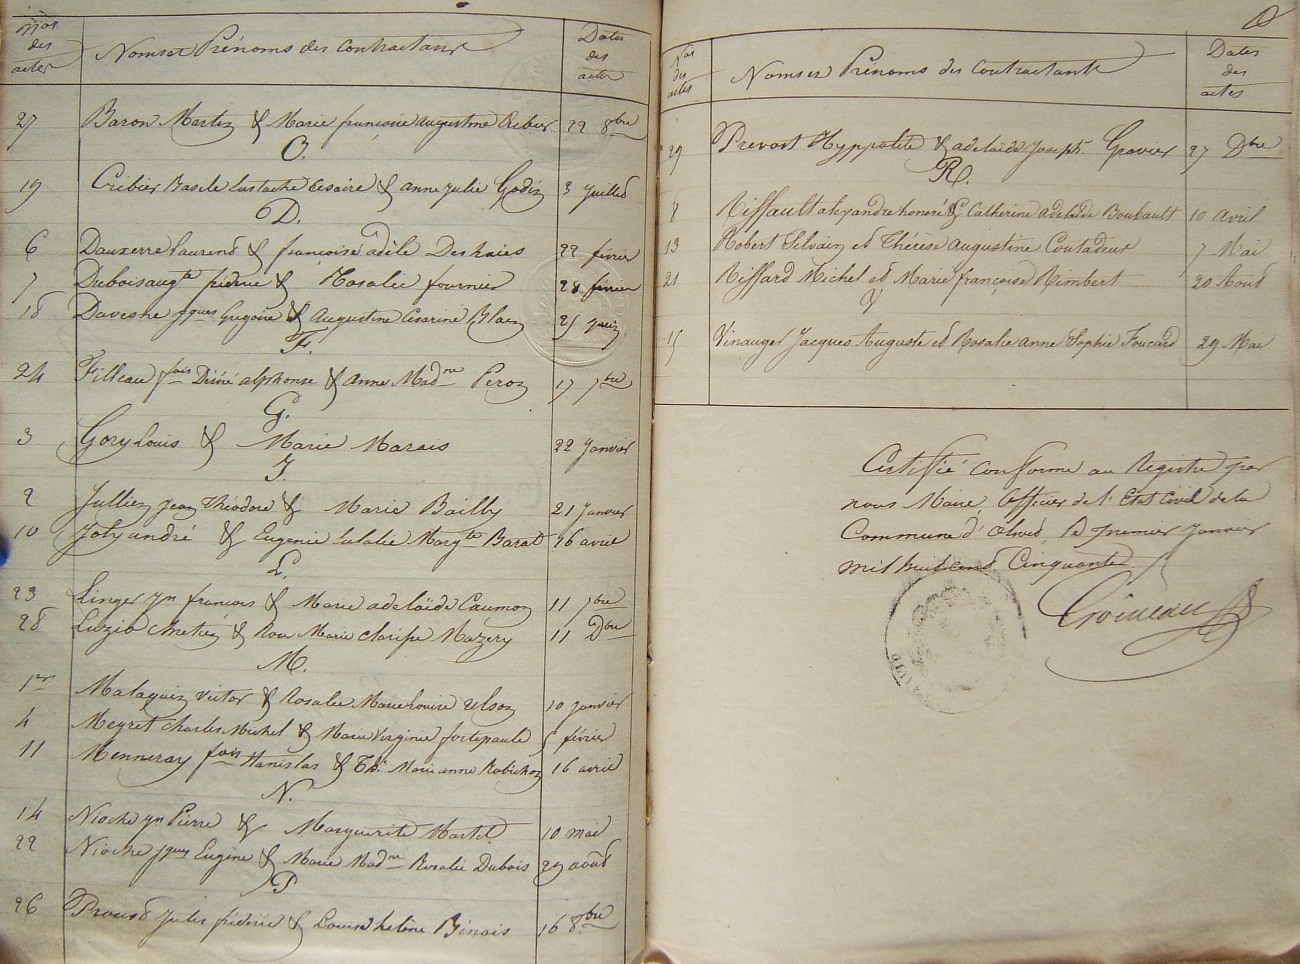 Nos des actes
Noms et Prénoms des contractans
Dates des actes
27 Baron Martin & Marie françoise augustine Cribier 22 8bre
C.
19 Cribier Basile Eustache Césaire & anne julie Godin 3 juillet
D.
6 Dauxerre Laurent & françoise adèle Deshaies 22 février
7 Dubois augte & Rosalie fournier 28 février
18 Davesne jques Grégoire & Augustine Césarine Blain 25 juin
F.
24 Filleau fois Désiré alphonse & anne Madne Peron 17 7bre
G.
3 Gory Louis & Marie Marais 22 janvier
J.
2 Jullien Jean Théodore & Marie Bailly 21 janvier
10 Joly andré & Eugenie Eulalie Margte Barat 16 avril
L.
23 Linger jn francois & Marie adelaïde Caumon 11 7bre
28 & Rose Marie Mazery 11 Dbre
M.
1er Malaquin Victor & Rosalie Marie Louise 10 janvier
4 Meyret Charles Michel & Marie Virginie fortepaule 5 février
11 Menneray fois Stanislas & Marianne Robichon 16 avril
N.
14 Nioche jn Pierre & Marguerite Martel 10 mai
22 Nioche jques Eugène & Marie Madne Rosalie Dubois 29 août
P
26 Proust Jules & Louise helène Binois 16 8bre
Nos des actes
Noms et Prénoms des Contractants
Dates des actes
29 Prevost Hyppolite & adelaïde Joseph. Gravier 27 Dbre
R.
8 Riffault alexandre honoré & Catherine adelaïde Boubault 10 avril
13 Robert Silvain et Thérèse Augustine Coutadeur 7 Mai
21 Riffard Michel et Marie françoise Rimbert 20 Aout
V
15 Vinauger Jacques Auguste et Rosalie Anne Sophie Foucard 29 Mai
Certifié conforme au Registre par
nous Maire, Officier de l'Etat Civil de la
Commune d'Olivet, le premier Janvier
mil huit cent Cinquante.